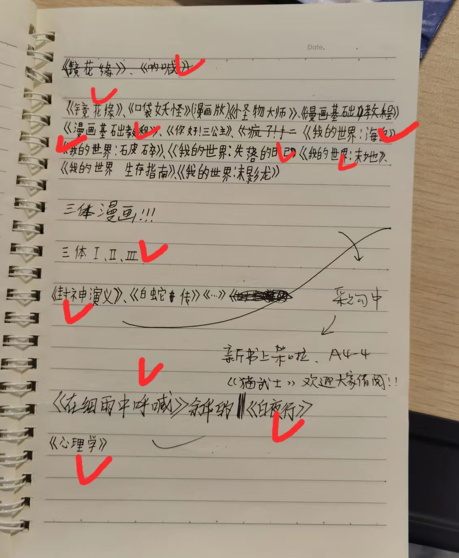 Date.
《镜花缘》、《呐喊》
《镜花缘》、《口袋妖怪》(漫画版)《怪物大师》、《漫画基础
《漫画基础教程》、《你好!三公主》、《疯子十二 《我的世界:海
《我的世界:石皮 《我的世界:失落的日记 《我的世界:末地》、
《我的世界 生存指南》、《我的世界:末影龙》
三体漫画!!!
三体 I、II、III
《封神演义》、《白蛇传》《…》
采购中
新书上架啦、A4-4
《猫武士》欢迎大家借阅!!
《在细雨中呼喊》余华的 《白夜行》
《心理学》